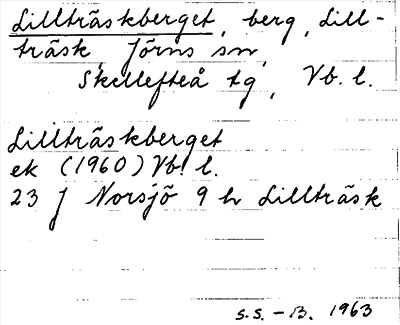 Lillträskberget, berg, Lill-
träsk, Jörns sn,
Skellefteå tg, Vb. l.
Lillträskberget
ek (1960) Vb. l.
23 J Norsjö 9 h Lillträsk
S.S. - B. 1963